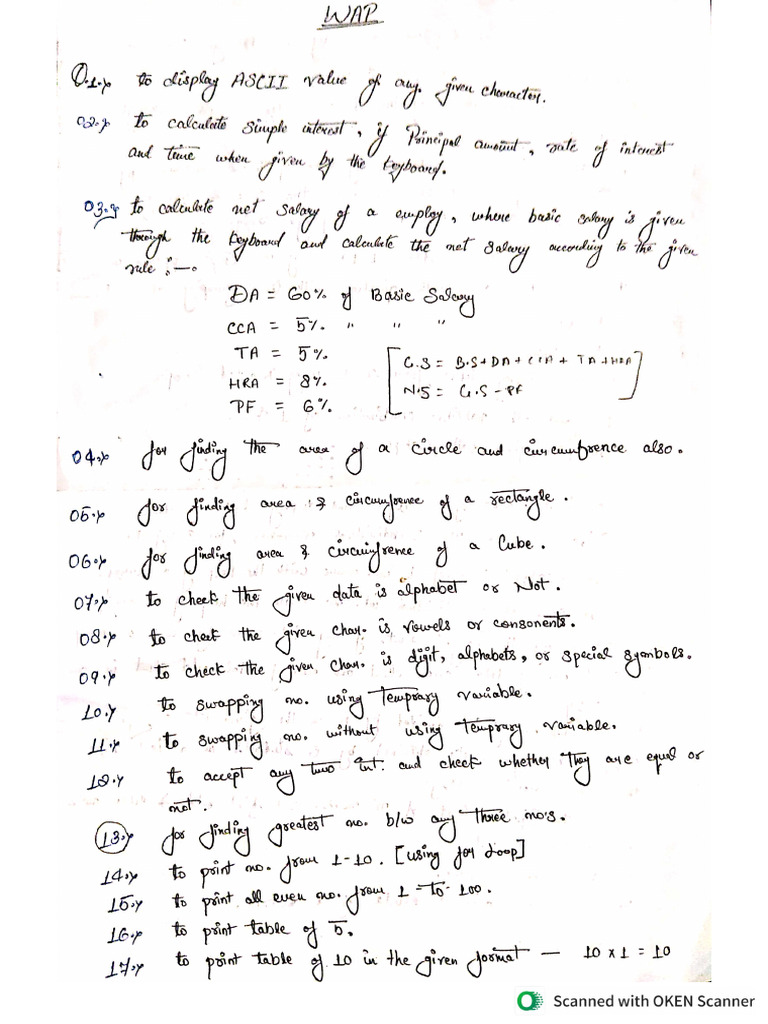 WAP
Q.1. to display ASCII value of any given character.
02. to calculate simple interest, if Principal amount, rate of interest
and time when given by the keyboard.
03. to calculate net salary of a employ, where basic salary is given
through the keyboard and calculate the net salary according to the given
rule :—
DA = 60% of Basic Salary
CCA = 5% " " "
TA = 5%
HRA = 8%
PF = 6%
[G.S = B.S + DA + CCA + TA + HRA]
N.S = G.S - PF
04. for finding the area of a circle and circumference also.
05. for finding area & circumference of a rectangle.
06. for finding area & circumfrence of a Cube.
07. to check the given data is alphabet or Not.
08. to check the given char. is vowels or consonents.
09. to check the given char. is digit, alphabets, or special symbols.
10. to swapping no. using Temprary variable.
11. to swapping no. without using Temprary variable.
12. to accept any two int. and check whether they are equal or
not.
13. for finding greatest no. b/w any three no's.
14. to print no. from 1-10. [using for Loop]
15. to print all even no. from 1 to 100.
16. to print table of 5.
17. to print table of 10 in the given format — 10 x 1 = 10
Scanned with OKEN Scanner